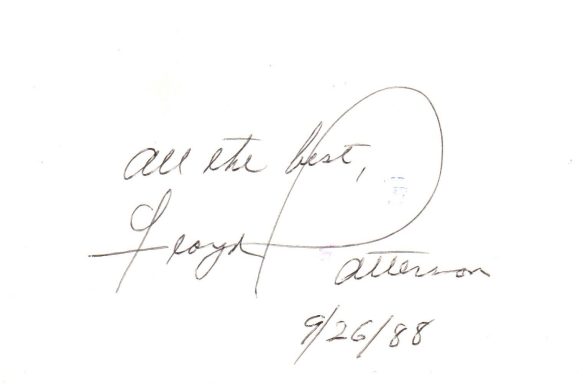 all the best,
Floyd Patterson
9/26/88